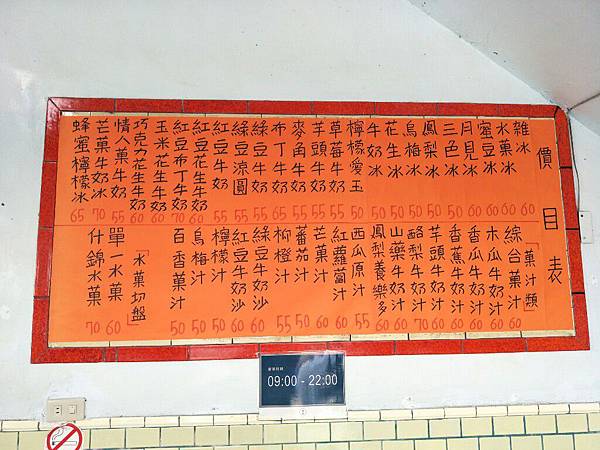 價目表
雜冰 60
水菓冰 60
蜜豆冰 60
月見冰 60
三色冰 50
鳳梨冰 50
烏梅冰 50
花生冰 50
牛奶冰 50
檸檬愛玉 55
草莓牛奶 65
芋頭牛奶 55
麥角牛奶 55
布丁牛奶 65
綠豆牛奶 55
綠豆涼圓 55
紅豆牛奶 55
紅豆花生牛奶 60
紅豆布丁牛奶 70
玉米花生牛奶 60
巧克力花生牛奶 60
情人菓牛奶 55
芒菓牛奶冰 70
蜂蜜檸檬冰 65
「菓汁類」
綜合菓汁 60
木瓜牛奶汁 60
香瓜牛奶汁 60
香蕉牛奶汁 60
芋頭牛奶汁 60
酪梨牛奶汁 70
山藥牛奶汁 60
鳳梨養樂多 60
西瓜原汁 55
紅蘿蔔汁 60
芒菓汁 60
蕃茄汁 50
柳橙汁 55
綠豆牛奶沙 60
紅豆牛奶沙 60
檸檬汁 50
烏梅汁 50
百香菓汁 50
「水菓切盤」
單一水菓 60
什錦水菓 70
營業時間
09:00 - 22:00